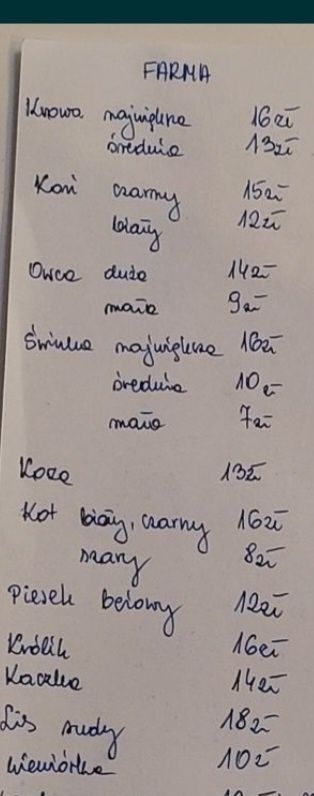 FARMA
Krowa największa 16zł
średnia 13zł
Koń czarny 15zł
biały 12zł
Owca duża 14zł
mała 9zł
Świnka największa 16zł
średnia 10zł
mała 7zł
Koza 13zł
Kot biały, czarny 16zł
szary 8zł
Piesek beżowy 12zł
Królik 16zł
Kaczka 14zł
Lis rudy 18zł
wiewiórka 10zł